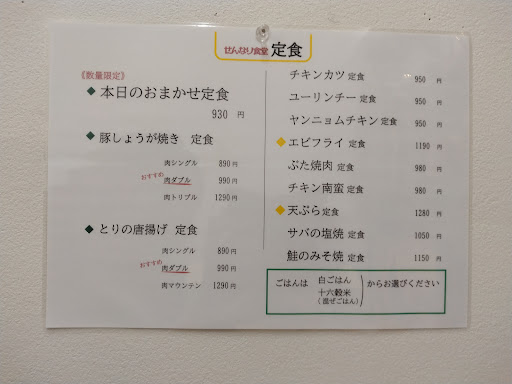 せんなり食堂 定食
《数量限定》
◆ 本日のおまかせ定食
930 円
◆ 豚しょうが焼き 定食
肉シングル 890円
おすすめ 肉ダブル 990円
肉トリプル 1290円
◆ とりの唐揚げ 定食
肉シングル 890円
おすすめ 肉ダブル 990円
肉マウンテン 1290円
チキンカツ 定食 950 円
ユーリンチー 定食 950 円
ヤンニョムチキン 定食 950 円
◆ エビフライ 定食 1190 円
ぶた焼肉 定食 980 円
チキン南蛮 定食 980 円
◆ 天ぷら定食 1280 円
サバの塩焼 定食 1050 円
鮭のみそ焼 定食 1150 円
ごはんは 白ごはん からお選びください
十六穀米
(混ぜごはん)